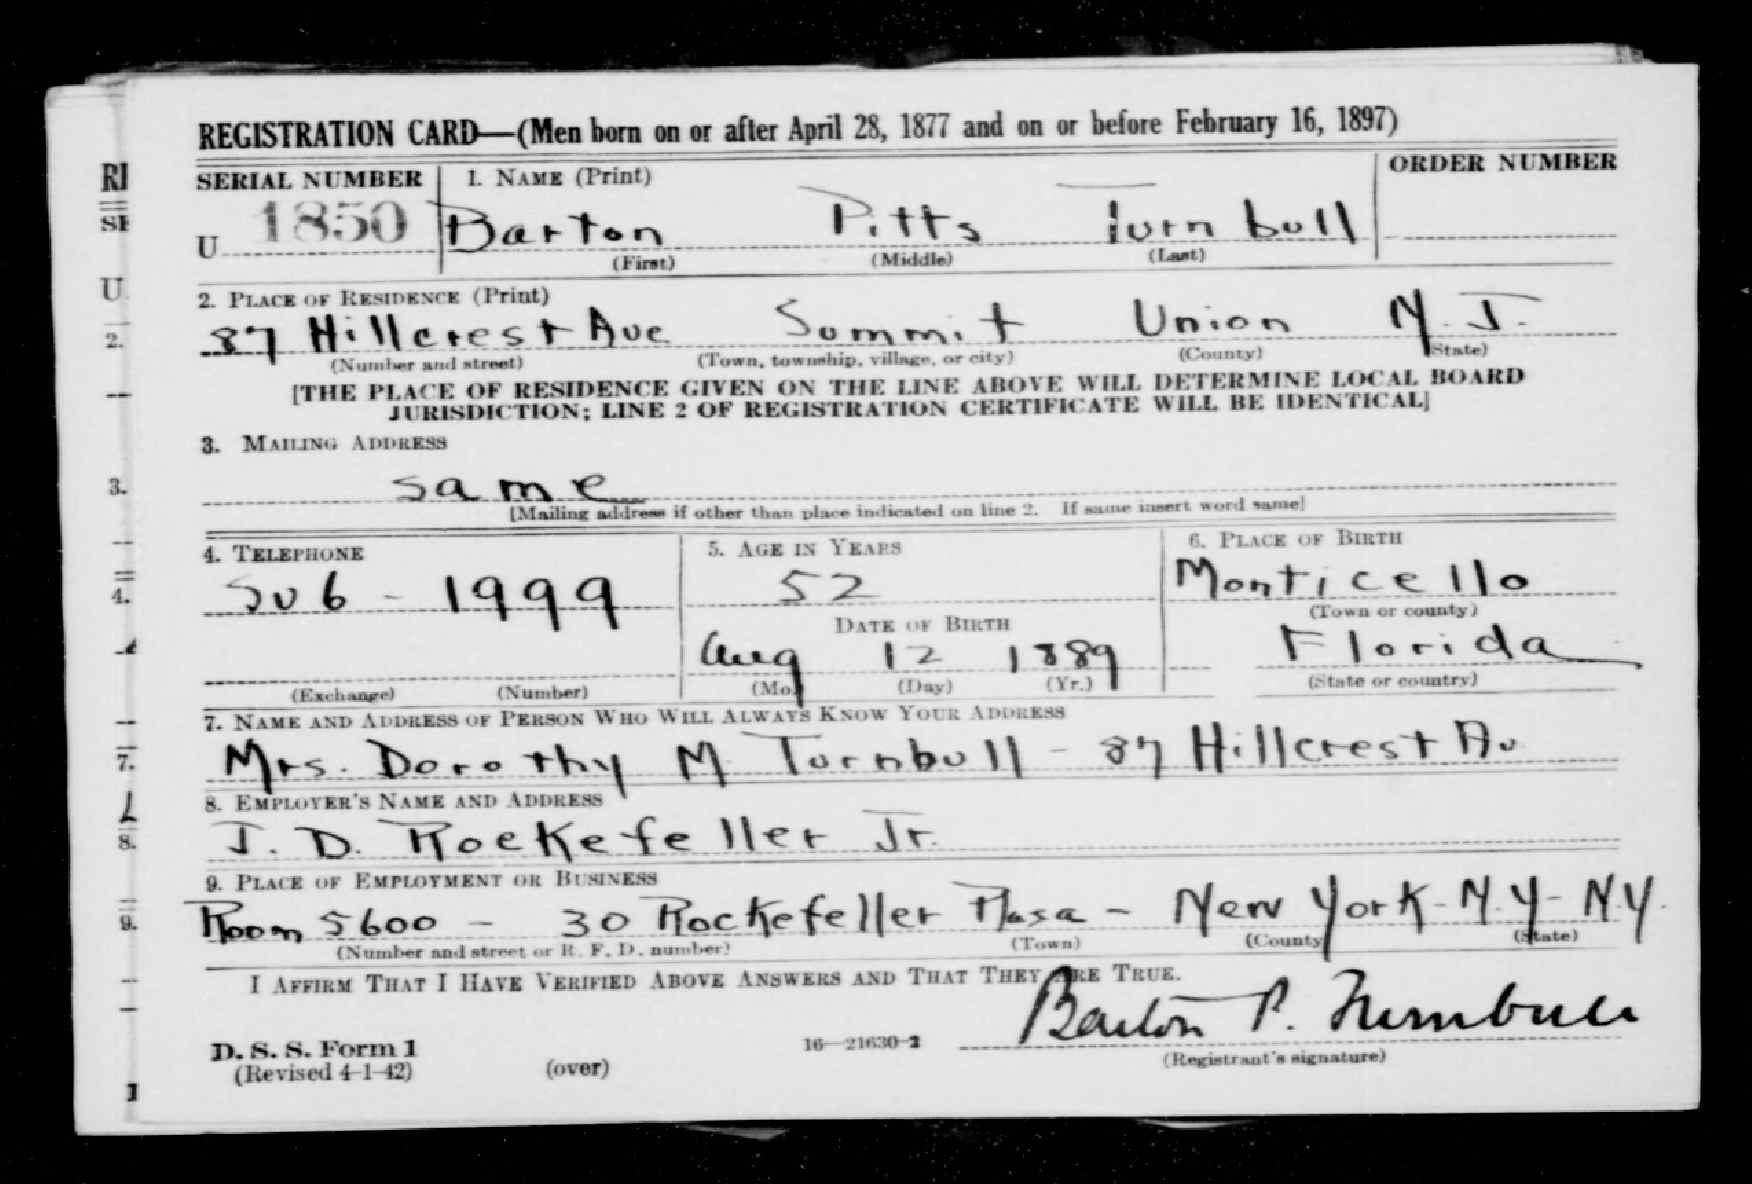 REGISTRATION CARD—(Men born on or after April 28, 1877 and on or before February 16, 1897)
SERIAL NUMBER 1. NAME (Print) ORDER NUMBER
U 1850 Barton Pitts Turnbull
(First) (Middle) (Last)
2. PLACE OF RESIDENCE (Print)
87 Hillcrest Ave Summit Union N.J.
(Number and street) (Town, township, village, or city) (County) (State)
[THE PLACE OF RESIDENCE GIVEN ON THE LINE ABOVE WILL DETERMINE LOCAL BOARD
JURISDICTION; LINE 2 OF REGISTRATION CERTIFICATE WILL BE IDENTICAL]
3. MAILING ADDRESS
same
[Mailing address if other than place indicated on line 2. If same insert word same]
4. TELEPHONE 5. AGE IN YEARS 6. PLACE OF BIRTH
Su 6 - 1999 52 Monticello
(Town or county)
DATE OF BIRTH Florida
Aug 12 1889
(Exchange) (Number) (Mo.) (Day) (Yr.) (State or country)
7. NAME AND ADDRESS OF PERSON WHO WILL ALWAYS KNOW YOUR ADDRESS
Mrs. Dorothy M Turnbull - 87 Hillcrest Av
8. EMPLOYER'S NAME AND ADDRESS
J. D. Rockefeller Jr.
9. PLACE OF EMPLOYMENT OR BUSINESS
Room 5600 - 30 Rockefeller Plasa - New York - N.Y - N.Y.
(Number and street or R. F. D. number) (Town) (County) (State)
I AFFIRM THAT I HAVE VERIFIED ABOVE ANSWERS AND THAT THEY ARE TRUE.
Barton P. Turnbull
D. S. S. Form 1 16—21630-2 (Registrant's signature)
(Revised 4-1-42) (over)